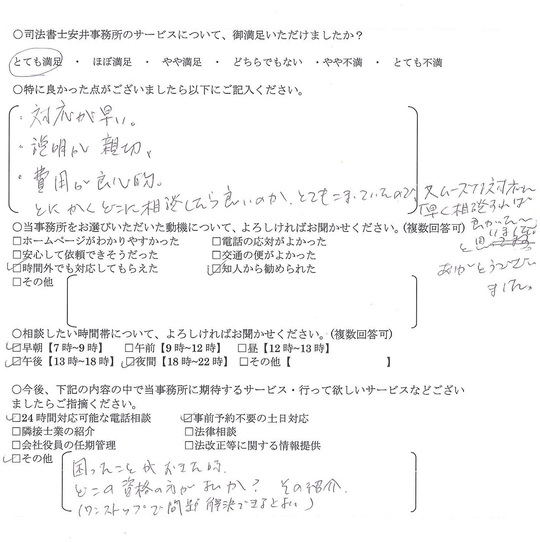 ○司法書士安井事務所のサービスについて、御満足いただけましたか？
とても満足 ・ ほぼ満足 ・ やや満足 ・ どちらでもない ・やや不満 ・ とても不満
○特に良かった点がございましたら以下にご記入ください。
・対応が早い。
・説明が親切。
・費用が良心的。
とにかくどこに相談したら良いのか、とてもこまっていたので、スムーズな対応に
早く相談すれば
良かった〜
と思います
ありがとうござい
ました。
○当事務所をお選びいただいた動機について、よろしければお聞かせください。(複数回答可)
□ホームページがわかりやすかった □電話の応対がよかった
□安心して依頼できそうだった □交通の便がよかった
☑時間外でも対応してもらえた ☑知人から勧められた
□その他
○相談したい時間帯について、よろしければお聞かせください。(複数回答可)
☑早朝【7時~9時】 □午前【9時~12時】 □昼【12時~13時】
☑午後【13時~18時】 ☑夜間【18時~22時】 □その他【 】
○今後、下記の内容の中で当事務所に期待するサービス・行って欲しいサービスなどござい
ましたらご指摘ください。
☑24時間対応可能な電話相談 ☑事前予約不要の土日対応
□隣接士業の紹介 □法律相談
□会社役員の任期管理 □法改正等に関する情報提供
☑その他
困ったことがおきた時、
どこの資格の方がよいか？ その紹介、
(ワンストップで問題解決できるとよい)